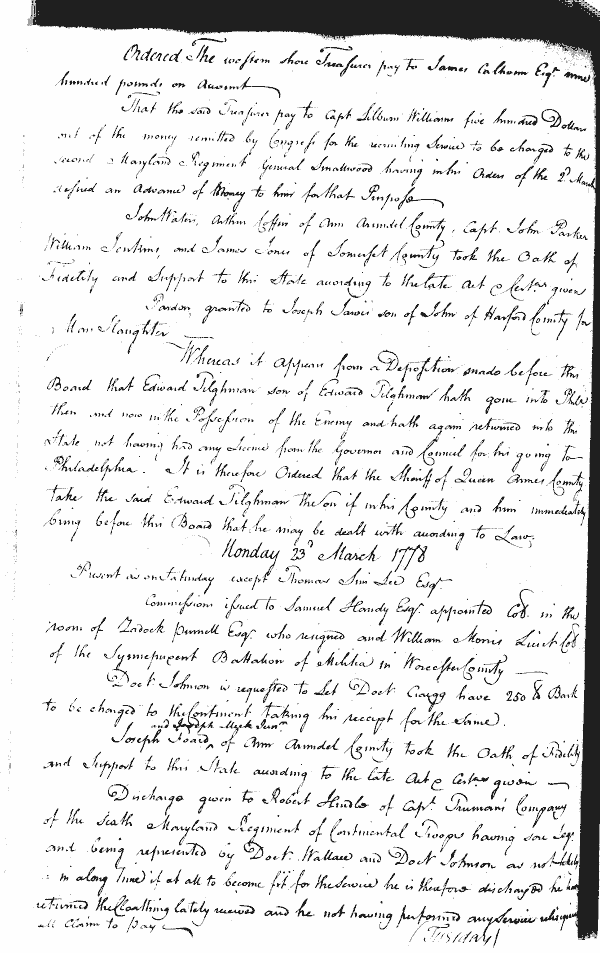 Ordered The western shore Treasurer pay to James Calhoun Esqr nine
hundred pounds on Account
That the said Treasurer pay to Capt Lilburn Williams five hundred Dollars
out of the money remitted by Congress for the recruiting Service to be charged to the
second Maryland Regiment General Smallwood having in his Orders of the 2d March
desired an Advance of Money to him for that Purpose
John Waters, Arthur Coffin of Ann Arundel County, Capt. John Parker
William Jenkins, and James Jones of Somerset County took the Oath of
Fidelity and Support to this State according to the late Act & Certs given
Pardon granted to Joseph Jarvis son of John of Harford County for
Man Slaughter
Whereas it appears from a Deposition made before this
Board that Edward Tilghman son of Edward Tilghman hath gone into Phila
then and now in the Possession of the Enemy and hath again returned into this
State not having had any License from the Governor and Council for his going to
Philadelphia. It is therefore Ordered that the Sheriff of Queen Annes County
take the said Edward Tilghman the son if in his County and him immediately
bring before this Board that he may be dealt with according to Law.
Monday 23d March 1778
Present as on Saturday except Thomas Sim Lee Esqr
Commission issued to Samuel Handy Esqr appointed Col. in the
room of Zadock Purnell Esqr who resigned and William Morris Lieut Col
of the Synnepuxent Battalion of Militia in Worcester County
Doct Johnson is requested to Let Doct Cragg have 250 lb Bark
to be charged to the Continent taking his receipt for the same.
and Joseph Meek Junr
Joseph of Ann Arundel County took the Oath of Fidelity
and Support to this State according to the late Act & Certs given
Discharge given to Robert Hindle of Capt. Truman's Company
of the Sixth Maryland Regiment of Continental Troops having sore Legs
and being represented by Doct. Wallace and Doct Johnson as not likely
in a long time if at all to become fit for the service he is therefore discharged he has
returned the Cloathing lately received and he not having performed any Service relinquishes
all Claim to Pay
(Tuesday)